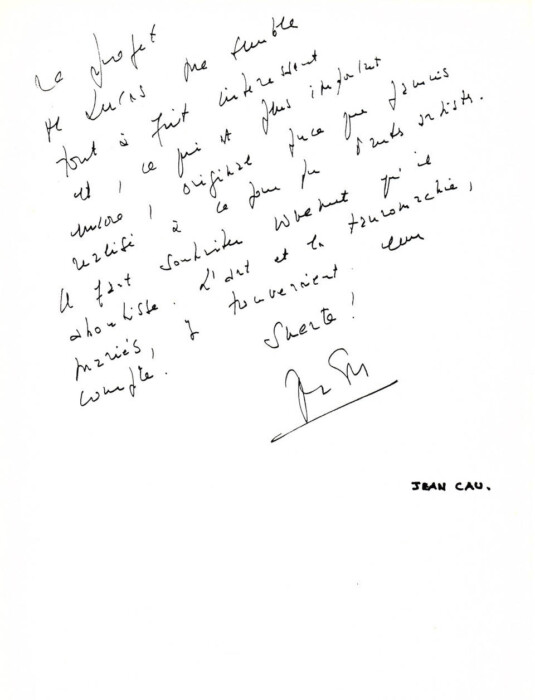 Le projet
de Lucas me semble
tout à fait intéressant
et, ce qui est plus important
encore, original parce que jamais
réalisé à ce jour par d'autres artistes.
Il faut souhaiter vivement qu'il
aboutisse. L'art et la tauromachie,
mariés, y trouveraient leur
compte. Suerte!
JEAN CAU.